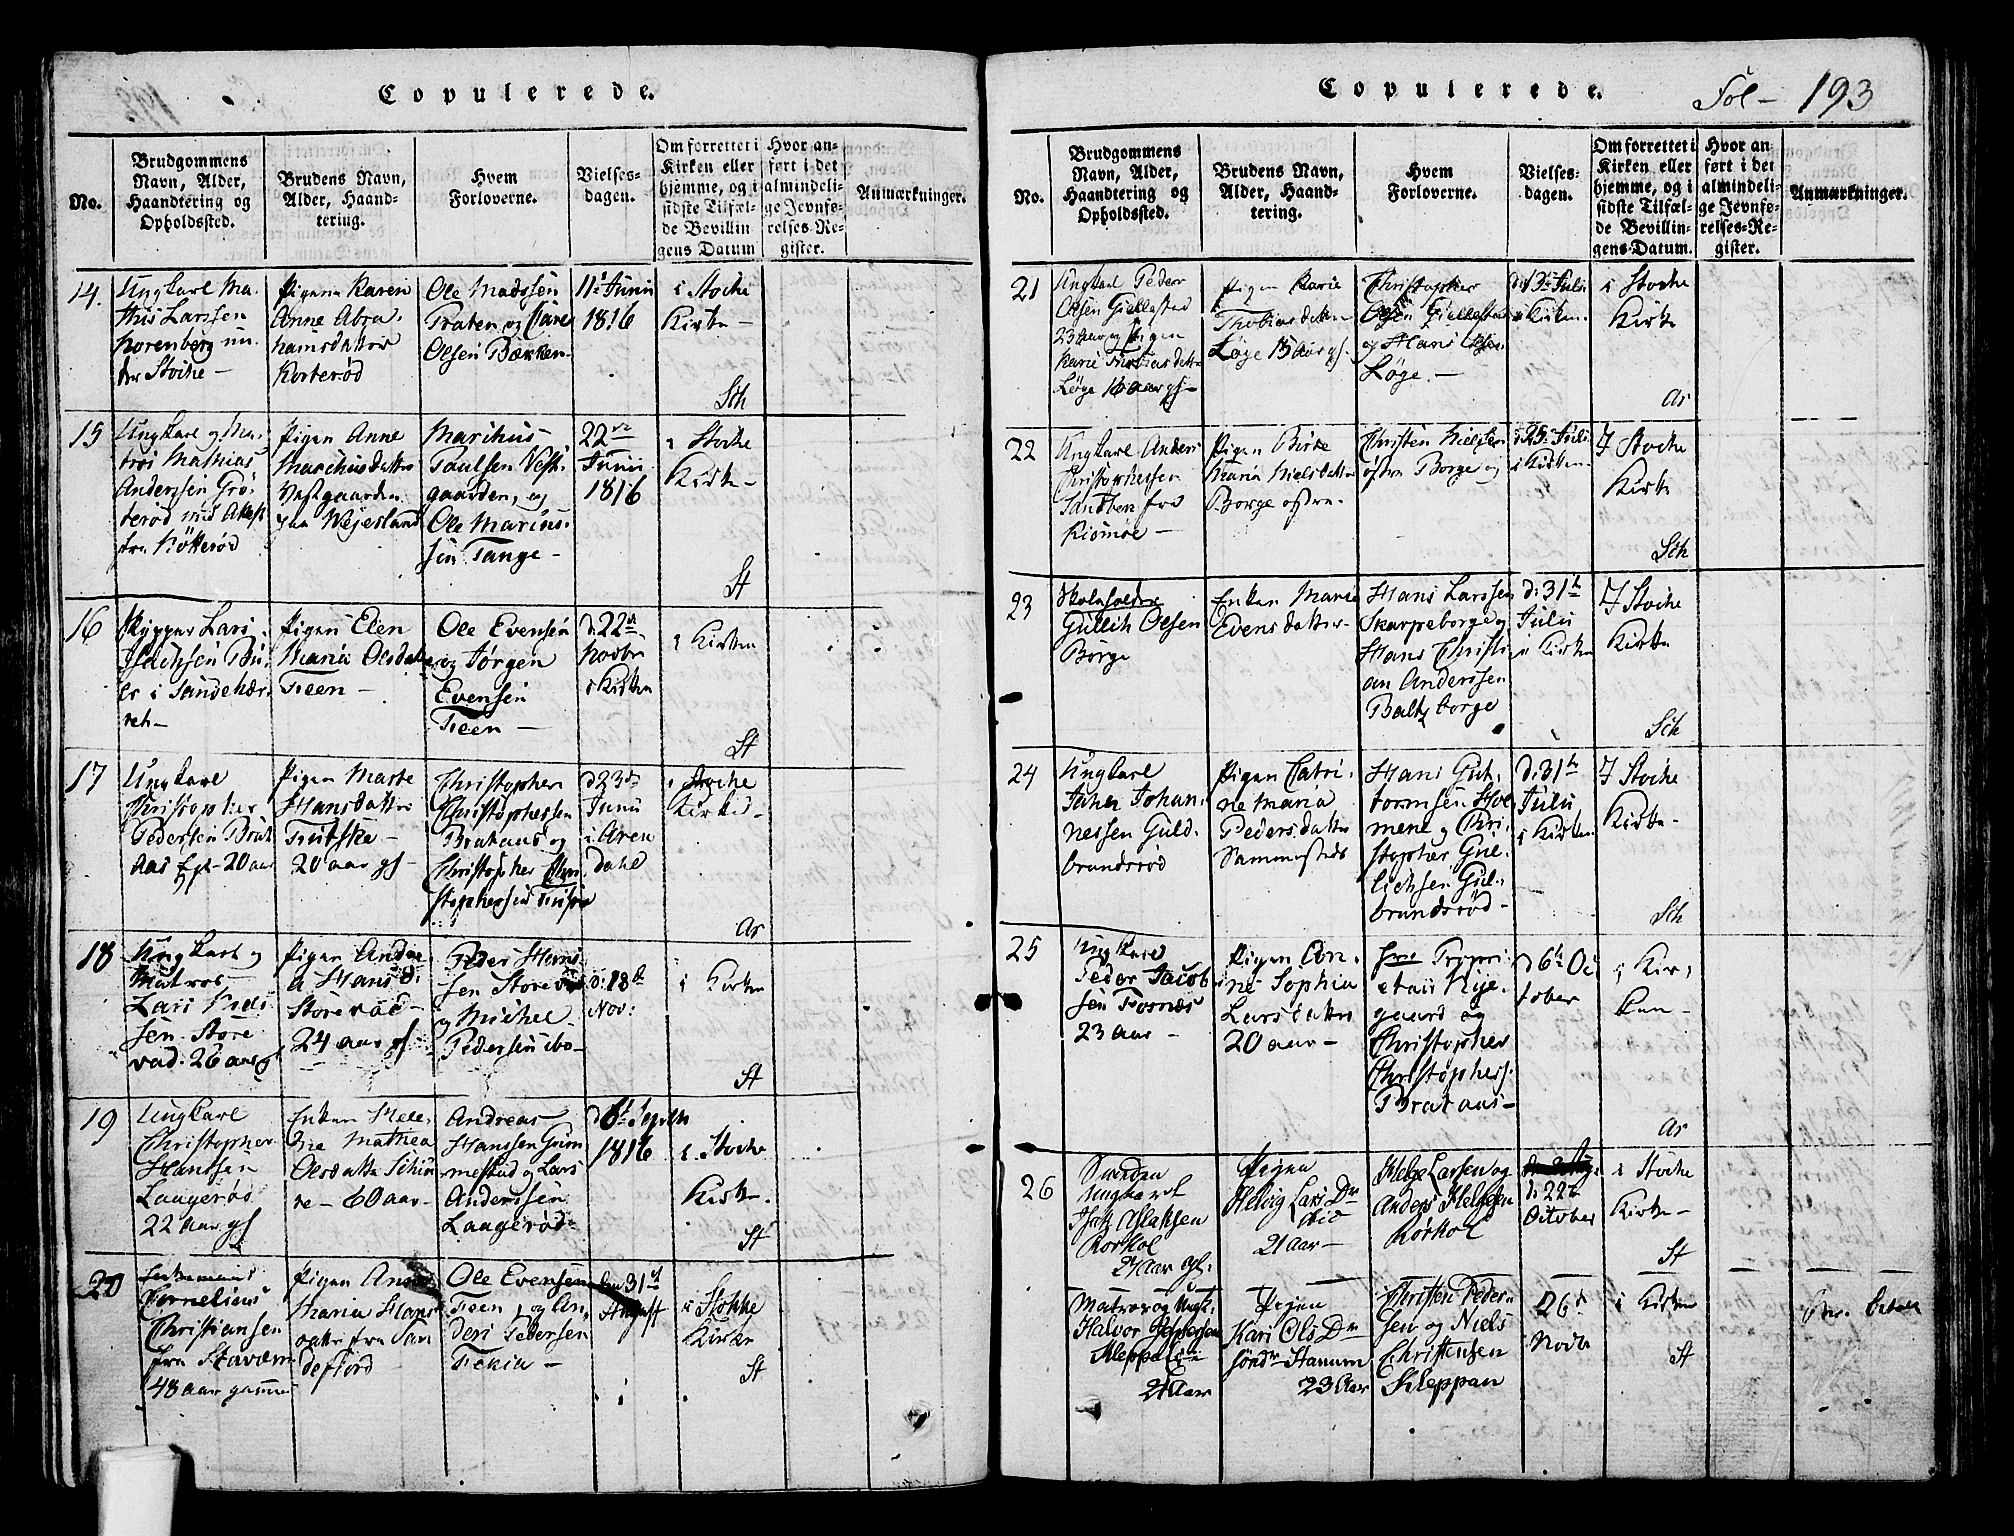 Copulerede.
No.
Brudgommens
Navn, Alder,
Haandtering og
Opholdssted.
Brudens Navn,
Alder, Haand-
tering.
Hvem
Forloverne.
Vielses-
dagen.
Om forrettet i
Kirken eller
hjemme, og i
sidste Tilfæl-
de Bevillin-
gens Datum
Hvor an-
ført i det
almindeli-
ge Jevnfø-
relses-Re-
gister.
Anmærkninger.
14.
Ungkarl Ma-
this Larssen
Norenberg un-
der Stocke –
Pigen Karen
Anne Abra
hamsdatter
Korterød
Ole Madssen
Praten, og
Olsen Bækken
11te Junii
1816
i Stocke
Kirke –
Sch
15
Ungkarl og Ma-
tros Mathias
Anderssen Grö-
terød med
fra
Pigen Anne
Marchusdatter
Vestgaarden
paa Wejesland
Marchus
Paulsen Vest-
gaarden, og
Ole Marius-
sen Tange –
22de
Junii
1816
i Stocke
Kirke –
St
16
Skipper Lars
Isachsen Bu-
er i Sandehær-
ret –
Pigen Elen
Maria Olsdatter
Feen –
Ole Evensen
og Jørgen
Evensen
Feen –
d: 22de
Novbr
i Kirken
i Kirken
St
17
Ungkarl
Christopher
Pedersen Brat
aas 20 aar
Pigen Marte
Hansdatter
20 aar gl
Christopher
Christophersen
Brataas og
Christopher Chri
stophersen
d 23de
Junii
i Aren
Dahl
i Stocke
Kirke –
Ar
18
Ungkarl og
Matros
Lars
sen Store
vad. 26 aar gl
Pigen Andre
a Hans D.
Storevad –
24 aar gl –
Peder Han
sen Storevad
og Michel
Pedersen ibd
d: 18de
Nov:
i Kirken
St
19
Ungkarl
Christopher
Hansen
Laagerød
22 aar gl
Enken Hele-
ne Mathea
Olsdatter
ne – 60 aar –
Andreas
Hansen Grim
mestad og Lars
Anderssen
Laagerød –
d 6te Septbr
1816
i Stocke
Kirke –
St
20
Cornelius
Christiansen
fra Staværn
48 aar gammel
Pigen Anne
Maria Hans
datter fra San
defiord –
Ole Evensen
Feen, og An-
ders Pedersen
Fekia –
den 31te
August
i Stokke
Kirke
St
Copulerede.
Fol – 193
No.
Brudgommens
Navn, Alder,
Haandtering og
Opholdssted.
Brudens Navn,
Alder, Haand-
tering.
Hvem
Forloverne.
Vielses-
dagen.
Om forrettet i
Kirken eller
hjemme, og i
sidste Tilfæl-
de Bevillin-
gens Datum.
Hvor an-
ført i det
almindeli-
ge Jevnfø-
relses-Re-
gister.
Anmærkninger.
21
Ungkarl Peder
Olsen Giellestad
23 Aar og Pigen
Karie Thobiasdatter
Løge 16 aar gl –
Pigen Karie
Thobiasdatter
Løge Aar gl.
Christopher
Olsen Giellestad
og Hans Olsen
Løge. –
d 13de Julii
i Kirken
i Stocke
Kirke
Ar
22
Ungkarl Anders
Christophersen
fra
Kiømøe –
Pigen Birte
Maria Nielsdatter
Borge østre –
Christen Nielsen
østre Borge og
d 25de Juli
i Kirken
I Stocke
Kirke
Sch
23
Skoleholder
Gullich Olsen
Borge
Enken Marie
Evensdatter
Hans Larssen
Skarpeborge og
Hans Christi
an Anderssen
Baltzborge
d: 31te
Julii
i Kirken
I Stocke
Kirke
Sch
24
Ungkarl
Johan
nessen Guld-
brandsrød
Pigen Catri-
ne Maria
Pedersdatter
Sammesteds
Hans Gut-
tormsen Hol
mene og Chri-
stopher Gul-
lichsen Gul-
brandsrød –
d: 31te
Julii
i Kirken
I Stocke
Kirke –
Sch
25
Ungkarl
Peder Jacob
sen Fosnæs
23 aar –
Pigen
ne Sophia
Larsdatter
20 aar –
Propri-
etair Nye-
gaard og
Christopher
Christophers.
Brataas –
d 6te Oc
tober
i Kir-
ken –
Ar
26
Ungkarl
Isak Aslaksen
Rørkol
24 Aar gl.
Pigen
Helvig Lars Dr
ibid
21 Aar –
Helge Larsen og
Anders Helgesen
Rørkol
d. 22de
October
i Stocke
Kirke –
St
Matros og Ungk.
Halvor Jespersen
Kleppan
21 Aar
Pigen
Kari Ols Dr
søndr Hanum
23 Aar
Christen Peder
sen og Niels
Christensen
Kleppan
26de
Novb
i Kirken
St
betalt